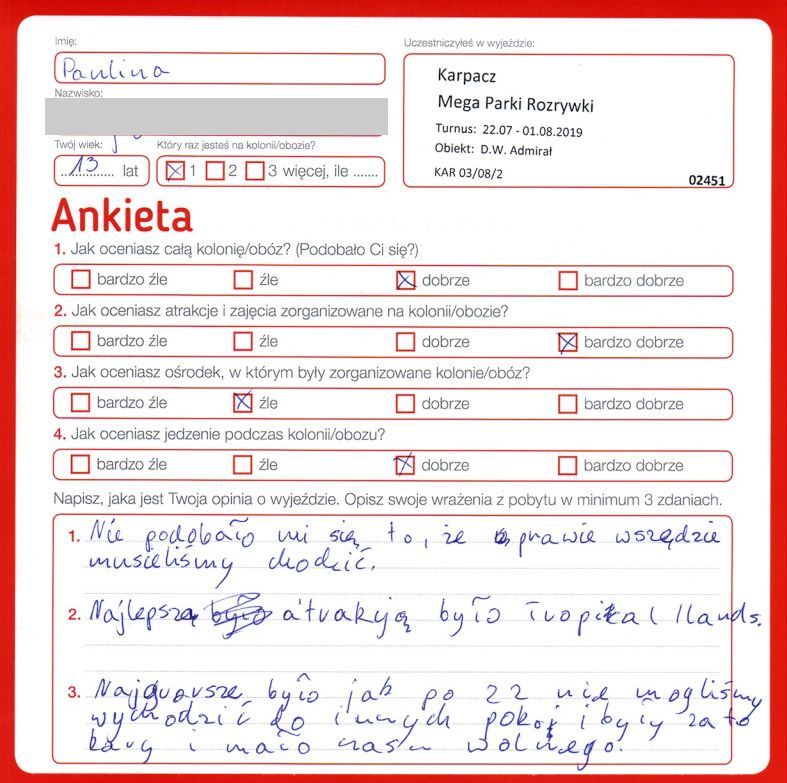 Imię:
Paulina
Nazwisko:
Twój wiek:
13 lat
Który raz jesteś na kolonii/obozie?
1 2 3 więcej, ile .......
Uczestniczyłeś w wyjeździe:
Karpacz
Mega Parki Rozrywki
Turnus: 22.07 - 01.08.2019
Obiekt: D.W. Admirał
KAR 03/08/2
02451
Ankieta
1. Jak oceniasz całą kolonię/obóz? (Podobało Ci się?)
bardzo źle źle dobrze bardzo dobrze
2. Jak oceniasz atrakcje i zajęcia zorganizowane na kolonii/obozie?
bardzo źle źle dobrze bardzo dobrze
3. Jak oceniasz ośrodek, w którym były zorganizowane kolonie/obóz?
bardzo źle źle dobrze bardzo dobrze
4. Jak oceniasz jedzenie podczas kolonii/obozu?
bardzo źle źle dobrze bardzo dobrze
Napisz, jaka jest Twoja opinia o wyjeździe. Opisz swoje wrażenia z pobytu w minimum 3 zdaniach.
1. Nie podobało mi się to, że prawie wszędzie
musieliśmy chodzić.
2. Najlepszą atrakcją było Tropikal Ilands.
3. Najgorsze było jak po 22 nie mogliśmy
wychodzić do innych pokoi i były za to
kary i mało czasu wolnego.